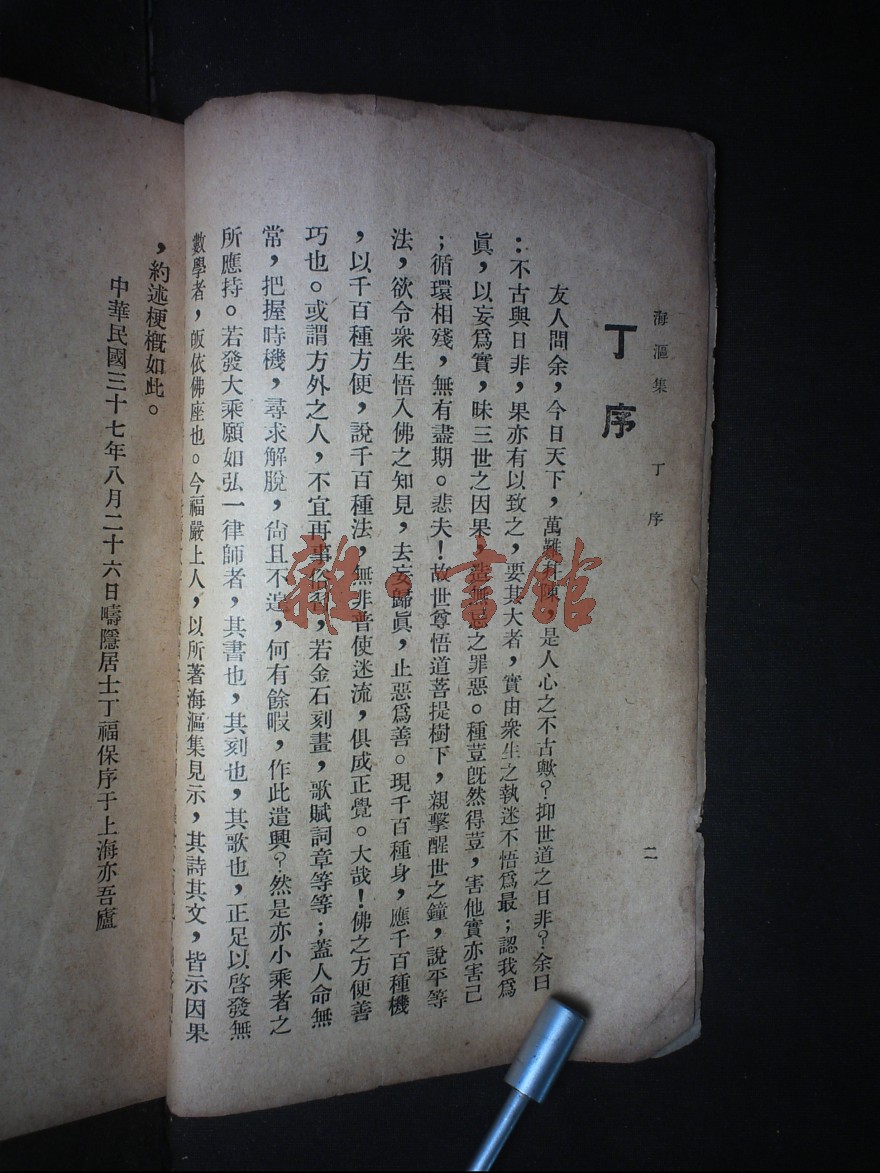 海漚集 丁序 二
丁序
友人問余，今日天下，萬難 陳，是人心之不古歟？抑世道之日非？余曰
：不古與日非，果亦有以致之，要其大者，實由衆生之執迷不悟爲最；認我爲
眞，以妄爲實，昧三世之因果，造無 之罪惡。種荳既然得荳，害他實亦害己
；循環相殘，無有盡期。悲夫！故世尊悟道菩提樹下，親擊醒世之鐘，說平等
法，欲令衆生悟入佛之知見，去妄歸眞，止惡爲善。現千百種身，應千百種機
，以千百種方便，說千百種法，無非普使迷流，俱成正覺。大哉！佛之方便善
巧也。或謂方外之人，不宜再事俗習，若金石刻畫，歌賦詞章等等；蓋人命無
常，把握時機，尋求解脫，尙且不遑，何有餘暇，作此遣興？然是亦小乘者之
所應持。若發大乘願如弘一律師者，其書也，其刻也，其歌也，正足以啓發無
數學者，皈依佛座也。今福嚴上人，以所著海漚集見示，其詩其文，皆示因果
，約述梗概如此。
中華民國三十七年八月二十六日疇隱居士丁福保序于上海亦吾廬
雜·書館